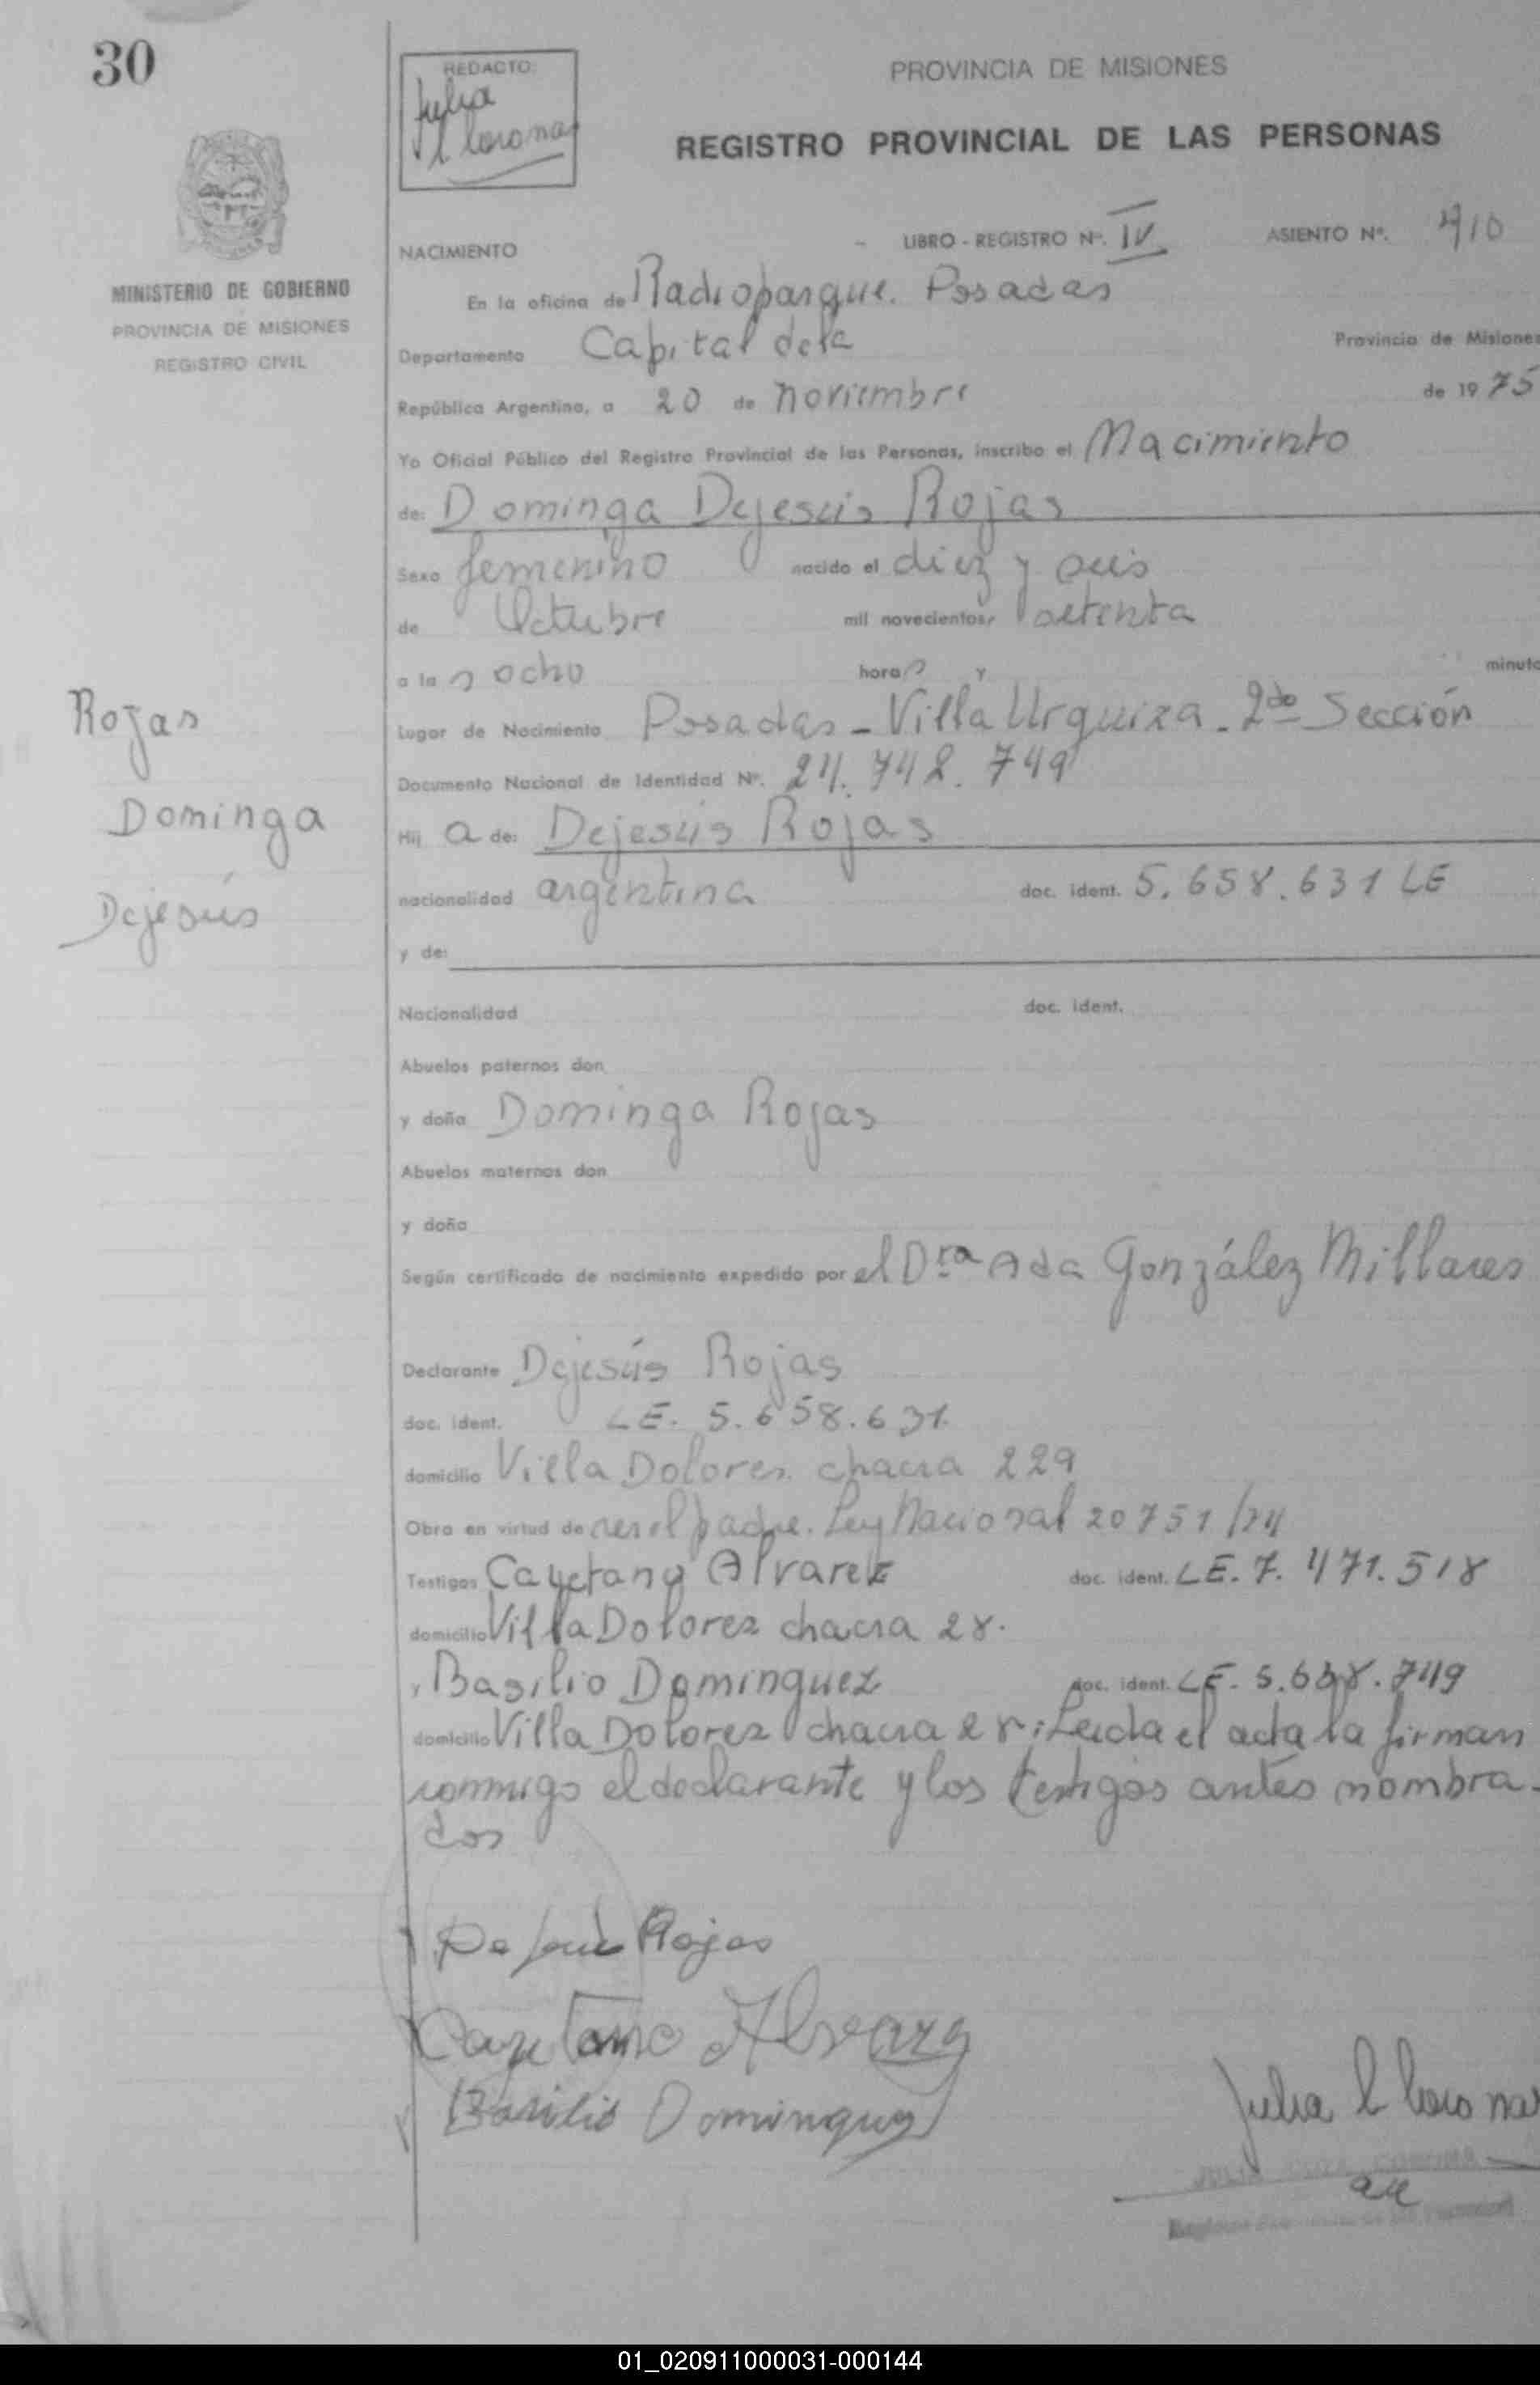 30
REDACTO:
Julia
PROVINCIA DE MISIONES
REGISTRO PROVINCIAL DE LAS PERSONAS
MINISTERIO DE GOBIERNO
PROVINCIA DE MISIONES
REGISTRO CIVIL
NACIMIENTO
LIBRO - REGISTRO Nº. IV
ASIENTO Nº.
En la oficina de Radioparque. Posadas
Departamento Capital de la Provincia de Misiones
República Argentina, a 20 de noviembre de 1975
Yo Oficial Público del Registro Provincial de las Personas, inscribo el Nacimiento
de: Dominga Dejesús Rojas
Sexo femenino nacido el diez y seis
de Octubre mil novecientos, setenta
a las ocho horas y minuto
Rojas
Dominga
Dejesús
Lugar de Nacimiento Posadas - Villa Urquiza - 2da Sección
Documento Nacional de Identidad Nº. 24.742.749
Hij a de: Dejesús Rojas
nacionalidad argentina doc. ident. 5.658.631 LE
y de:
Nacionalidad doc. ident.
Abuelos paternos don
y doña Dominga Rojas
Abuelos maternos don
y doña
Según certificado de nacimiento expedido por el Dra Ada González Millares
Declarante Dejesús Rojas
doc. ident. LE. 5.658.631
domicilio Villa Dolores. chacra 229
Obra en virtud de ser el padre. Ley Nacional 20751/74
Testigos Cayetano Alvarez doc. ident. LE. 7.471.518
domicilio Villa Dolores chacra 28.
y Basilio Dominguez doc. ident. LE. 5.638.749
domicilio Villa Dolores chacra 28: Leida el acta la firman
conmigo el declarante y los testigos antes nombra-
dos
De Jesús Rojas
Cayetano Alvarez
Basilio Dominguez
Julia
01_020911000031-000144